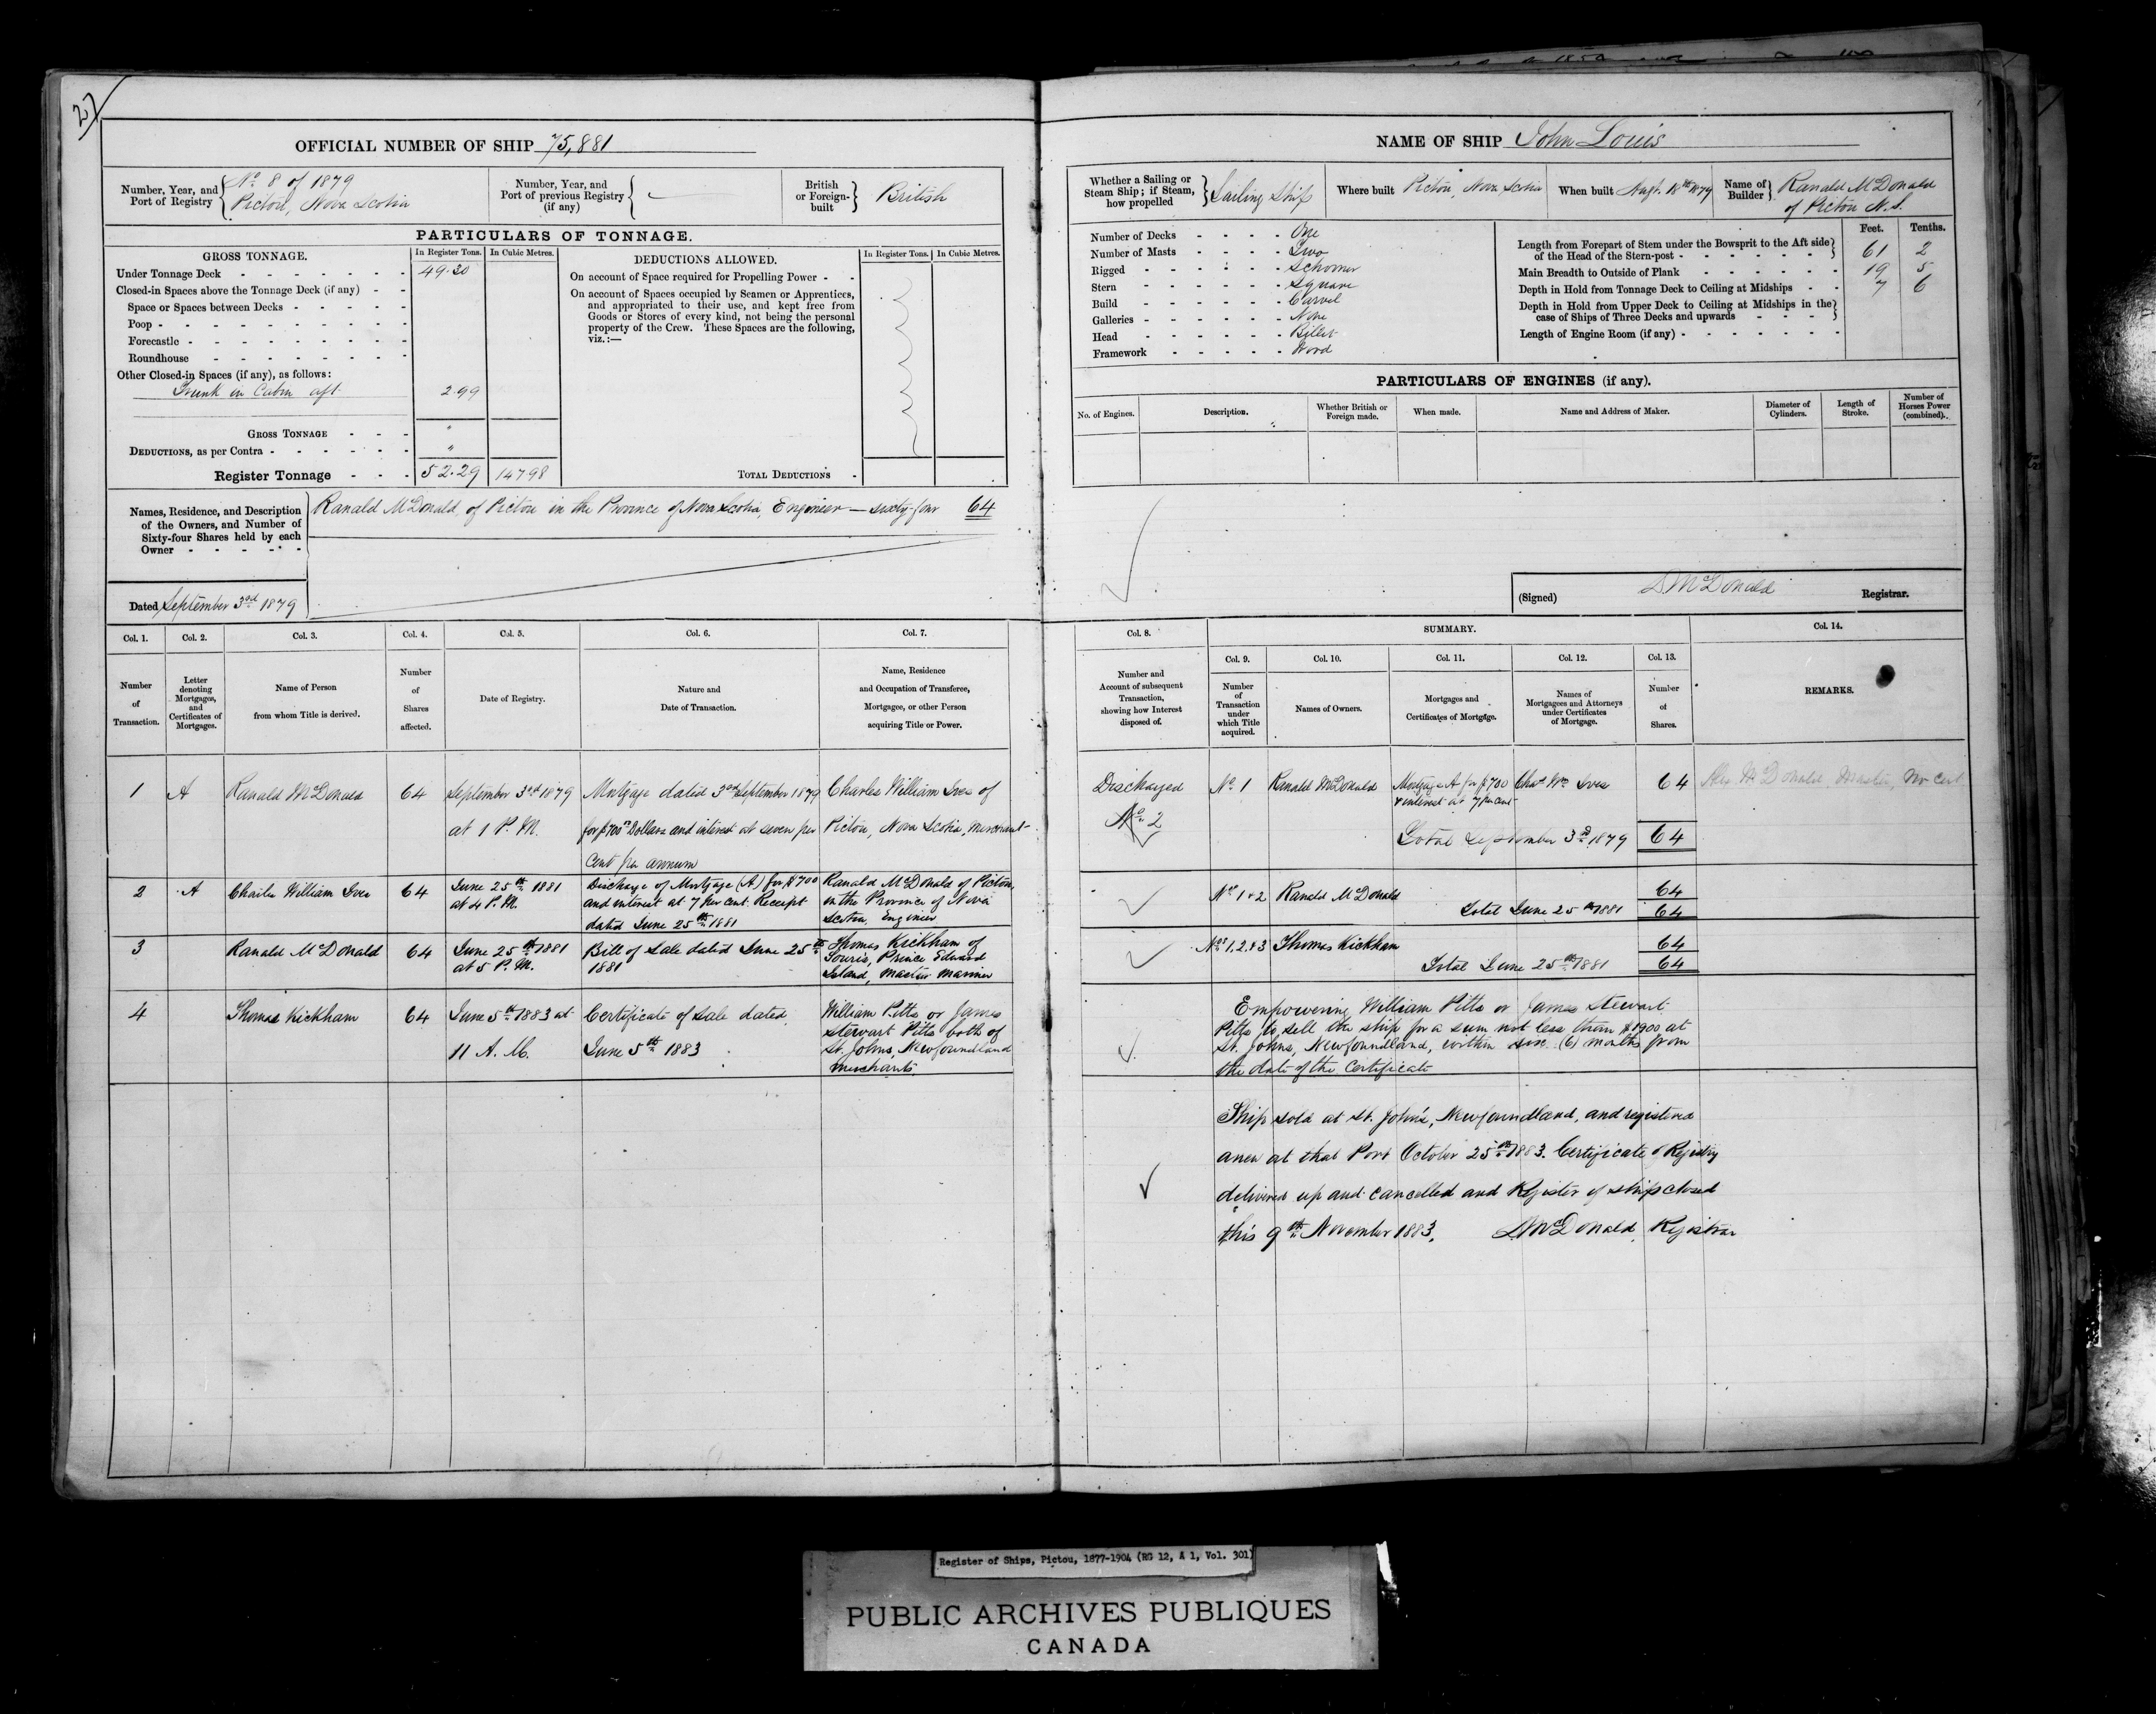 27
OFFICIAL NUMBER OF SHIP 75,881
Number, Year, and Port of Registry
No 8 of 1879
Pictou, Nova Scotia
Number, Year, and Port of previous Registry (if any)
British or Foreign-built
British
PARTICULARS OF TONNAGE.
GROSS TONNAGE.
In Register Tons.
In Cubic Metres.
Under Tonnage Deck 49.30
Closed-in Spaces above the Tonnage Deck (if any)
Space or Spaces between Decks
Poop
Forecastle
Roundhouse
Other Closed-in Spaces (if any), as follows:
Trunk in Cabin aft 2.99
GROSS TONNAGE "
DEDUCTIONS, as per Contra "
Register Tonnage 52.29 147.98
DEDUCTIONS ALLOWED.
In Register Tons.
In Cubic Metres.
On account of Space required for Propelling Power
On account of Spaces occupied by Seamen or Apprentices,
and appropriated to their use, and kept free from
Goods or Stores of every kind, not being the personal
property of the Crew. These Spaces are the following,
viz.:—
TOTAL DEDUCTIONS
Names, Residence, and Description
of the Owners, and Number of
Sixty-four Shares held by each
Owner
Ranald McDonald of Pictou in the Province of Nova Scotia, Engineer — sixty-four 64
Dated September 3rd 1879
NAME OF SHIP John Louis
Whether a Sailing or Steam Ship; if Steam, how propelled
Sailing Ship
Where built Pictou, Nova Scotia
When built Augt. 18th 1879
Name of Builder
Ranald McDonald
of Pictou N.S.
Number of Decks One
Number of Masts Two
Rigged Schooner
Stern Square
Build Carvel
Galleries None
Head Billet
Framework Wood
Feet. Tenths.
Length from Forepart of Stem under the Bowsprit to the Aft side
of the Head of the Stern-post 61 2
Main Breadth to Outside of Plank 19 5
Depth in Hold from Tonnage Deck to Ceiling at Midships 7 6
Depth in Hold from Upper Deck to Ceiling at Midships in the
case of Ships of Three Decks and upwards
Length of Engine Room (if any)
PARTICULARS OF ENGINES (if any).
No. of Engines.
Description.
Whether British or Foreign made.
When made.
Name and Address of Maker.
Diameter of Cylinders.
Length of Stroke.
Number of Horses Power (combined).
(Signed) D McDonald Registrar.
Col. 1.
Number of Transaction.
Col. 2.
Letter denoting Mortgages, and Certificates of Mortgages.
Col. 3.
Name of Person from whom Title is derived.
Col. 4.
Number of Shares affected.
Col. 5.
Date of Registry.
Col. 6.
Nature and Date of Transaction.
Col. 7.
Name, Residence and Occupation of Transferee, Mortgagee, or other Person acquiring Title or Power.
Col. 8.
Number and Account of subsequent Transaction, showing how Interest disposed of.
SUMMARY.
Col. 9.
Number of Transaction under which Title acquired.
Col. 10.
Names of Owners.
Col. 11.
Mortgages and Certificates of Mortgage.
Col. 12.
Names of Mortgagees and Attorneys under Certificates of Mortgage.
Col. 13.
Number of Shares.
Col. 14.
REMARKS.
1
A
Ranald McDonald
64
September 3rd 1879
at 1 P.M.
Mortgage dated 3rd September 1879
for $700 Dollars and interest at seven per
cent per annum
Charles William Ives of
Pictou, Nova Scotia, Merchant
Discharged
No 2
No 1
Ranald McDonald
Mortgage A for $700
& interest at 7 per cent
Chas Wm Ives
64
McDonald, Master, No Cert
Total September 3rd 1879 64
2
A
Charles William Ives
64
June 25th 1881
at 4 P.M.
Discharge of Mortgage (A) for $700
and interest at 7 per cent. Receipt
dated June 25th 1881
Ranald McDonald of Pictou,
in the Province of Nova
Scotia, Engineer
Nos 1 & 2
Ranald McDonald
64
Total June 25th 1881 64
3
Ranald McDonald
64
June 25th 1881
at 5 P.M.
Bill of Sale dated June 25th
1881
Thomas Kickham of
Souris, Prince Edward
Island, master mariner
Nos 1, 2, & 3
Thomas Kickham
64
Total June 25th 1881 64
4
Thomas Kickham
64
June 5th 1883 at
11 A.M.
Certificate of Sale dated
June 5th 1883
William Pitts or James
Stewart Pitts both of
St. Johns, Newfoundland
merchants.
Empowering William Pitts or James Stewart
Pitts to sell the ship for a sum not less than $1900 at
St. Johns, Newfoundland, within six (6) months from
the date of the Certificate
Ship sold at St. John's, Newfoundland, and registered
anew at that Port October 25th 1883. Certificate of Registry
delivered up and cancelled and Register of ship closed
this 9th November 1883. D McDonald, Registrar
Register of Ships, Pictou, 1877-1904 (RG 12, A 1, Vol. 301)
PUBLIC ARCHIVES PUBLIQUES
CANADA